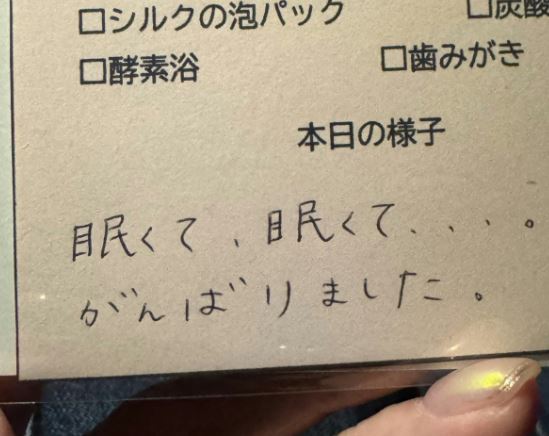 □シルクの泡パック □炭酸
□酵素浴 □歯みがき
本日の様子
眠くて、眠くて、、、。
がんばりました。